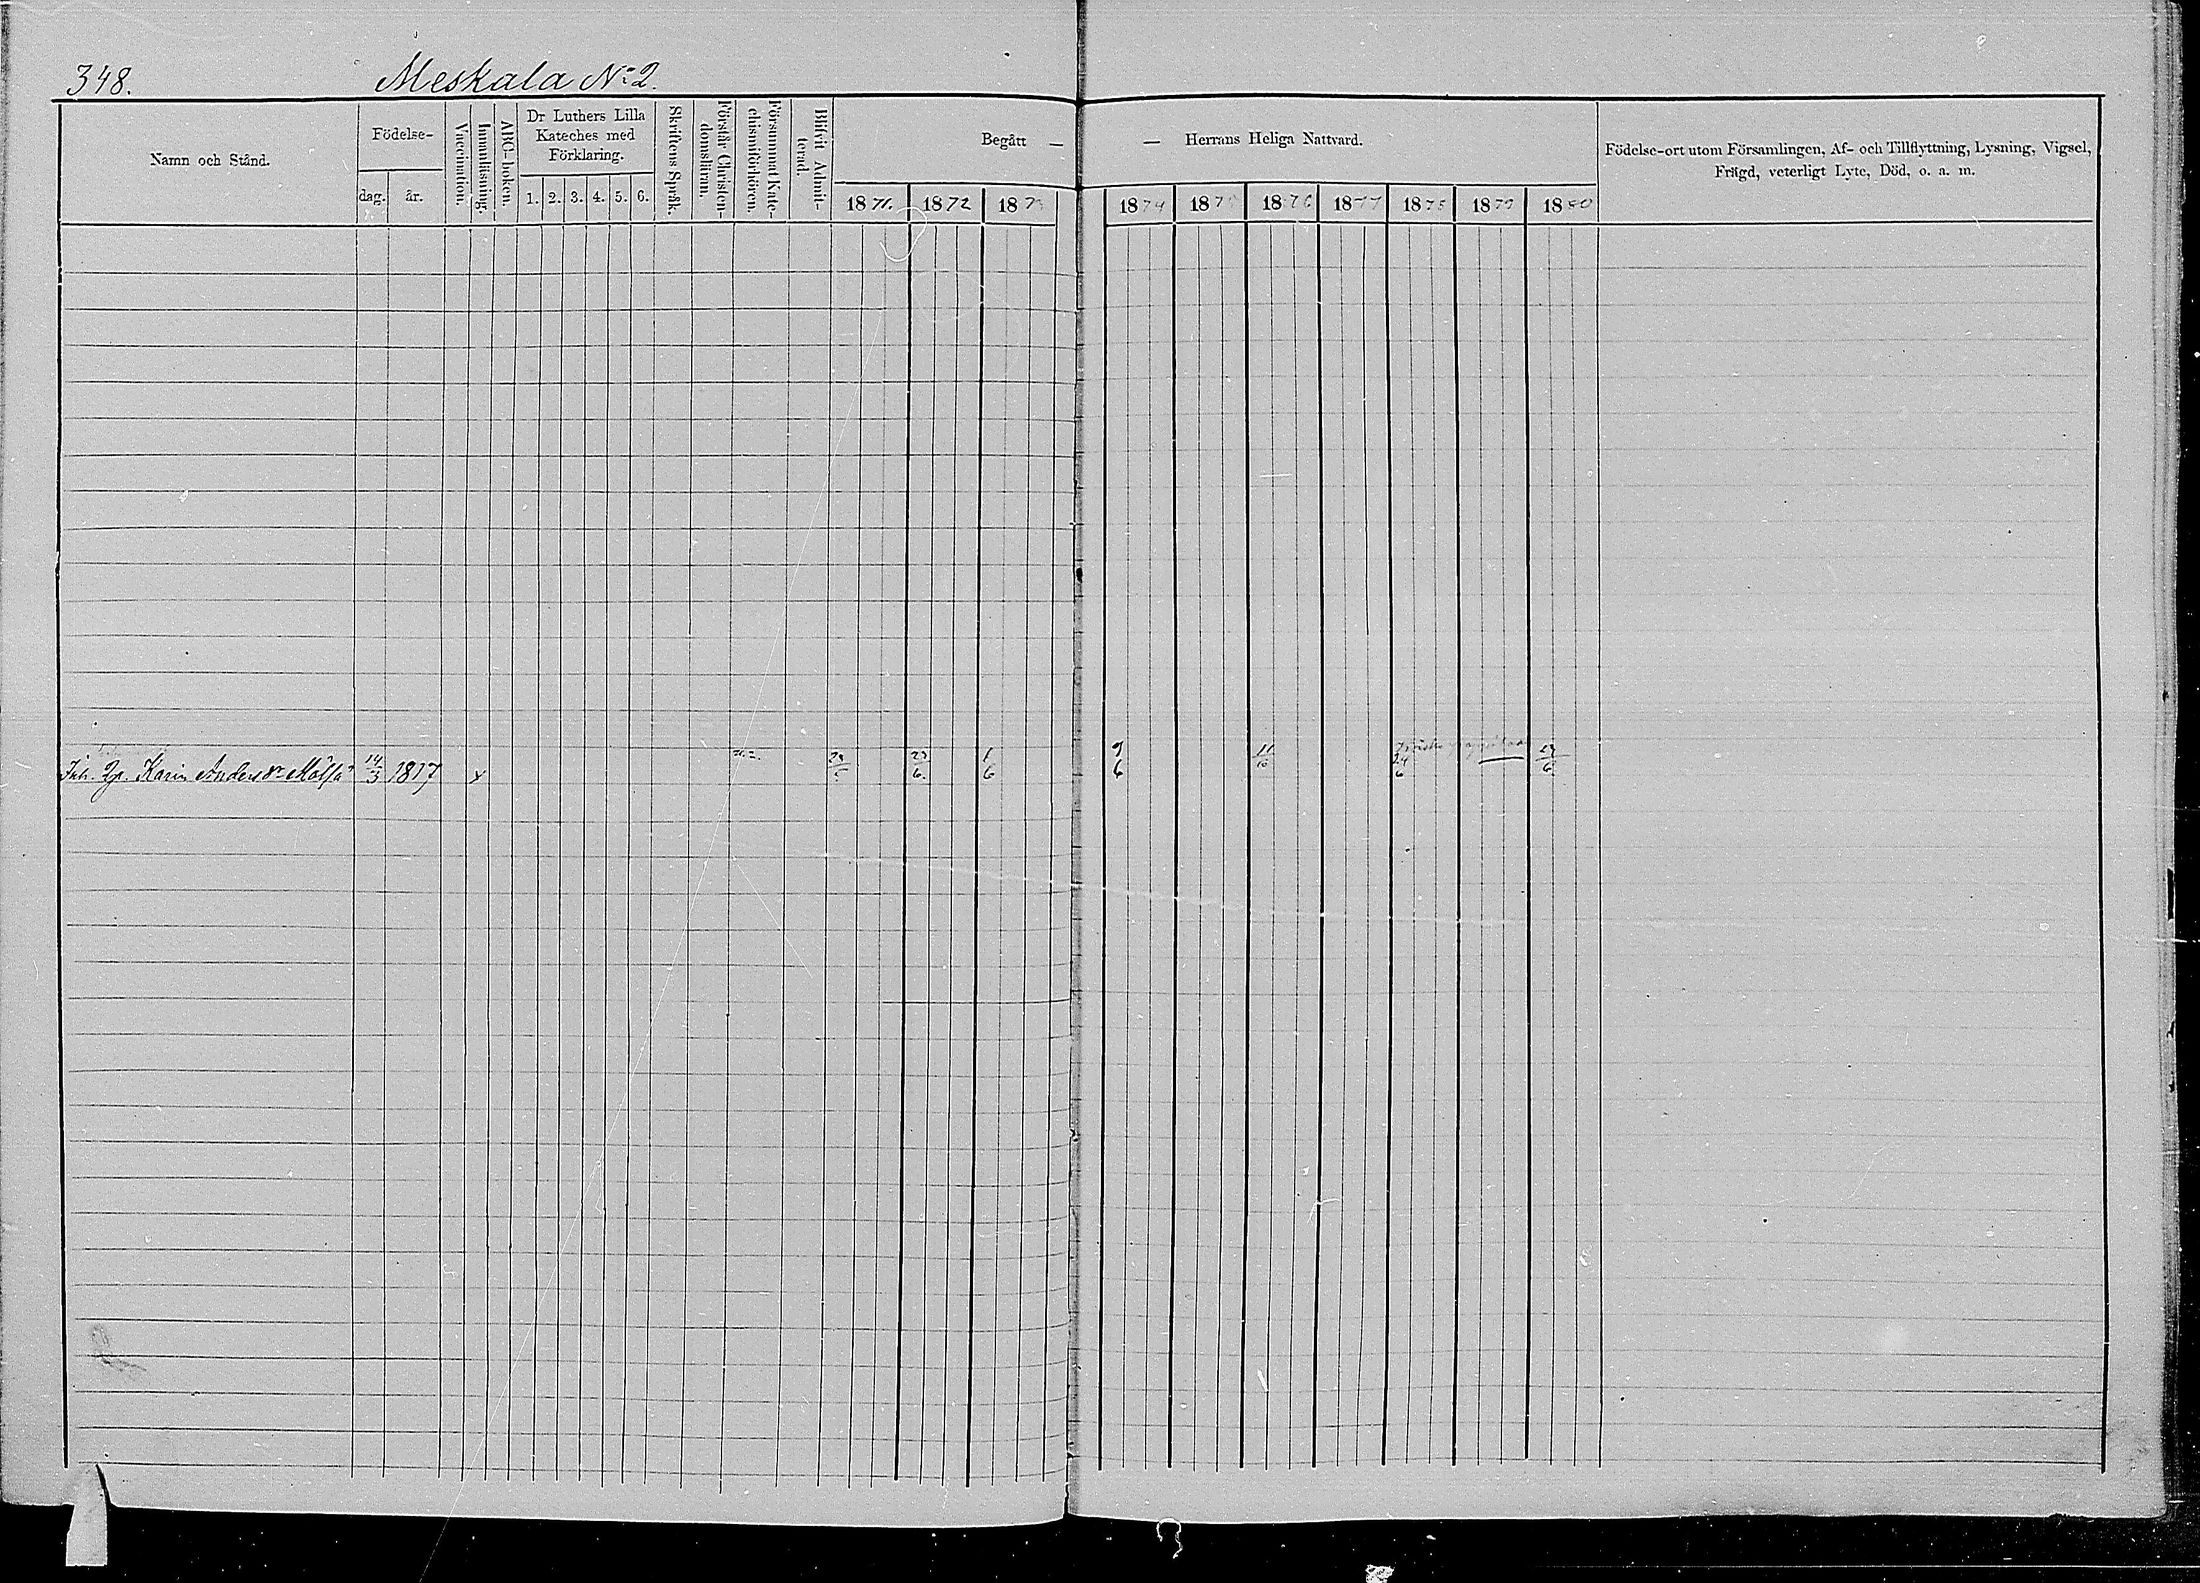 348. Meskala No 2.
Namn och Stånd.
Födelse-
dag. år.
Vaccination.
Innanläsning.
ABC-boken.
Dr Luthers Lilla
Kateches med
Förklaring.
1. 2. 3. 4. 5. 6.
Skriftens Språk.
Förstår Christen-
domsläran.
Försummat Kate-
chismiförhören.
Blifvit Admit-
terad.
Begått —
— Herrans Heliga Nattvard.
1871. 1872 1873 1874 1875 1876 1877 1878 1879 1880
Födelse-ort utom Församlingen, Af- och Tillflyttning, Lysning, Vigsel,
Frägd, veterligt Lyte, Död, o. a. m.
Karin Andersdr 14/3 1817 x 23/6 1/6 9/6 11/10 24/6